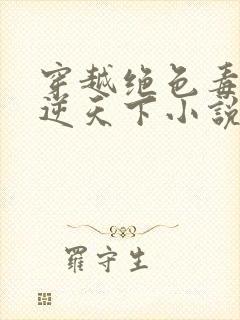 穿越绝色毒
逆天下小説
羅守生